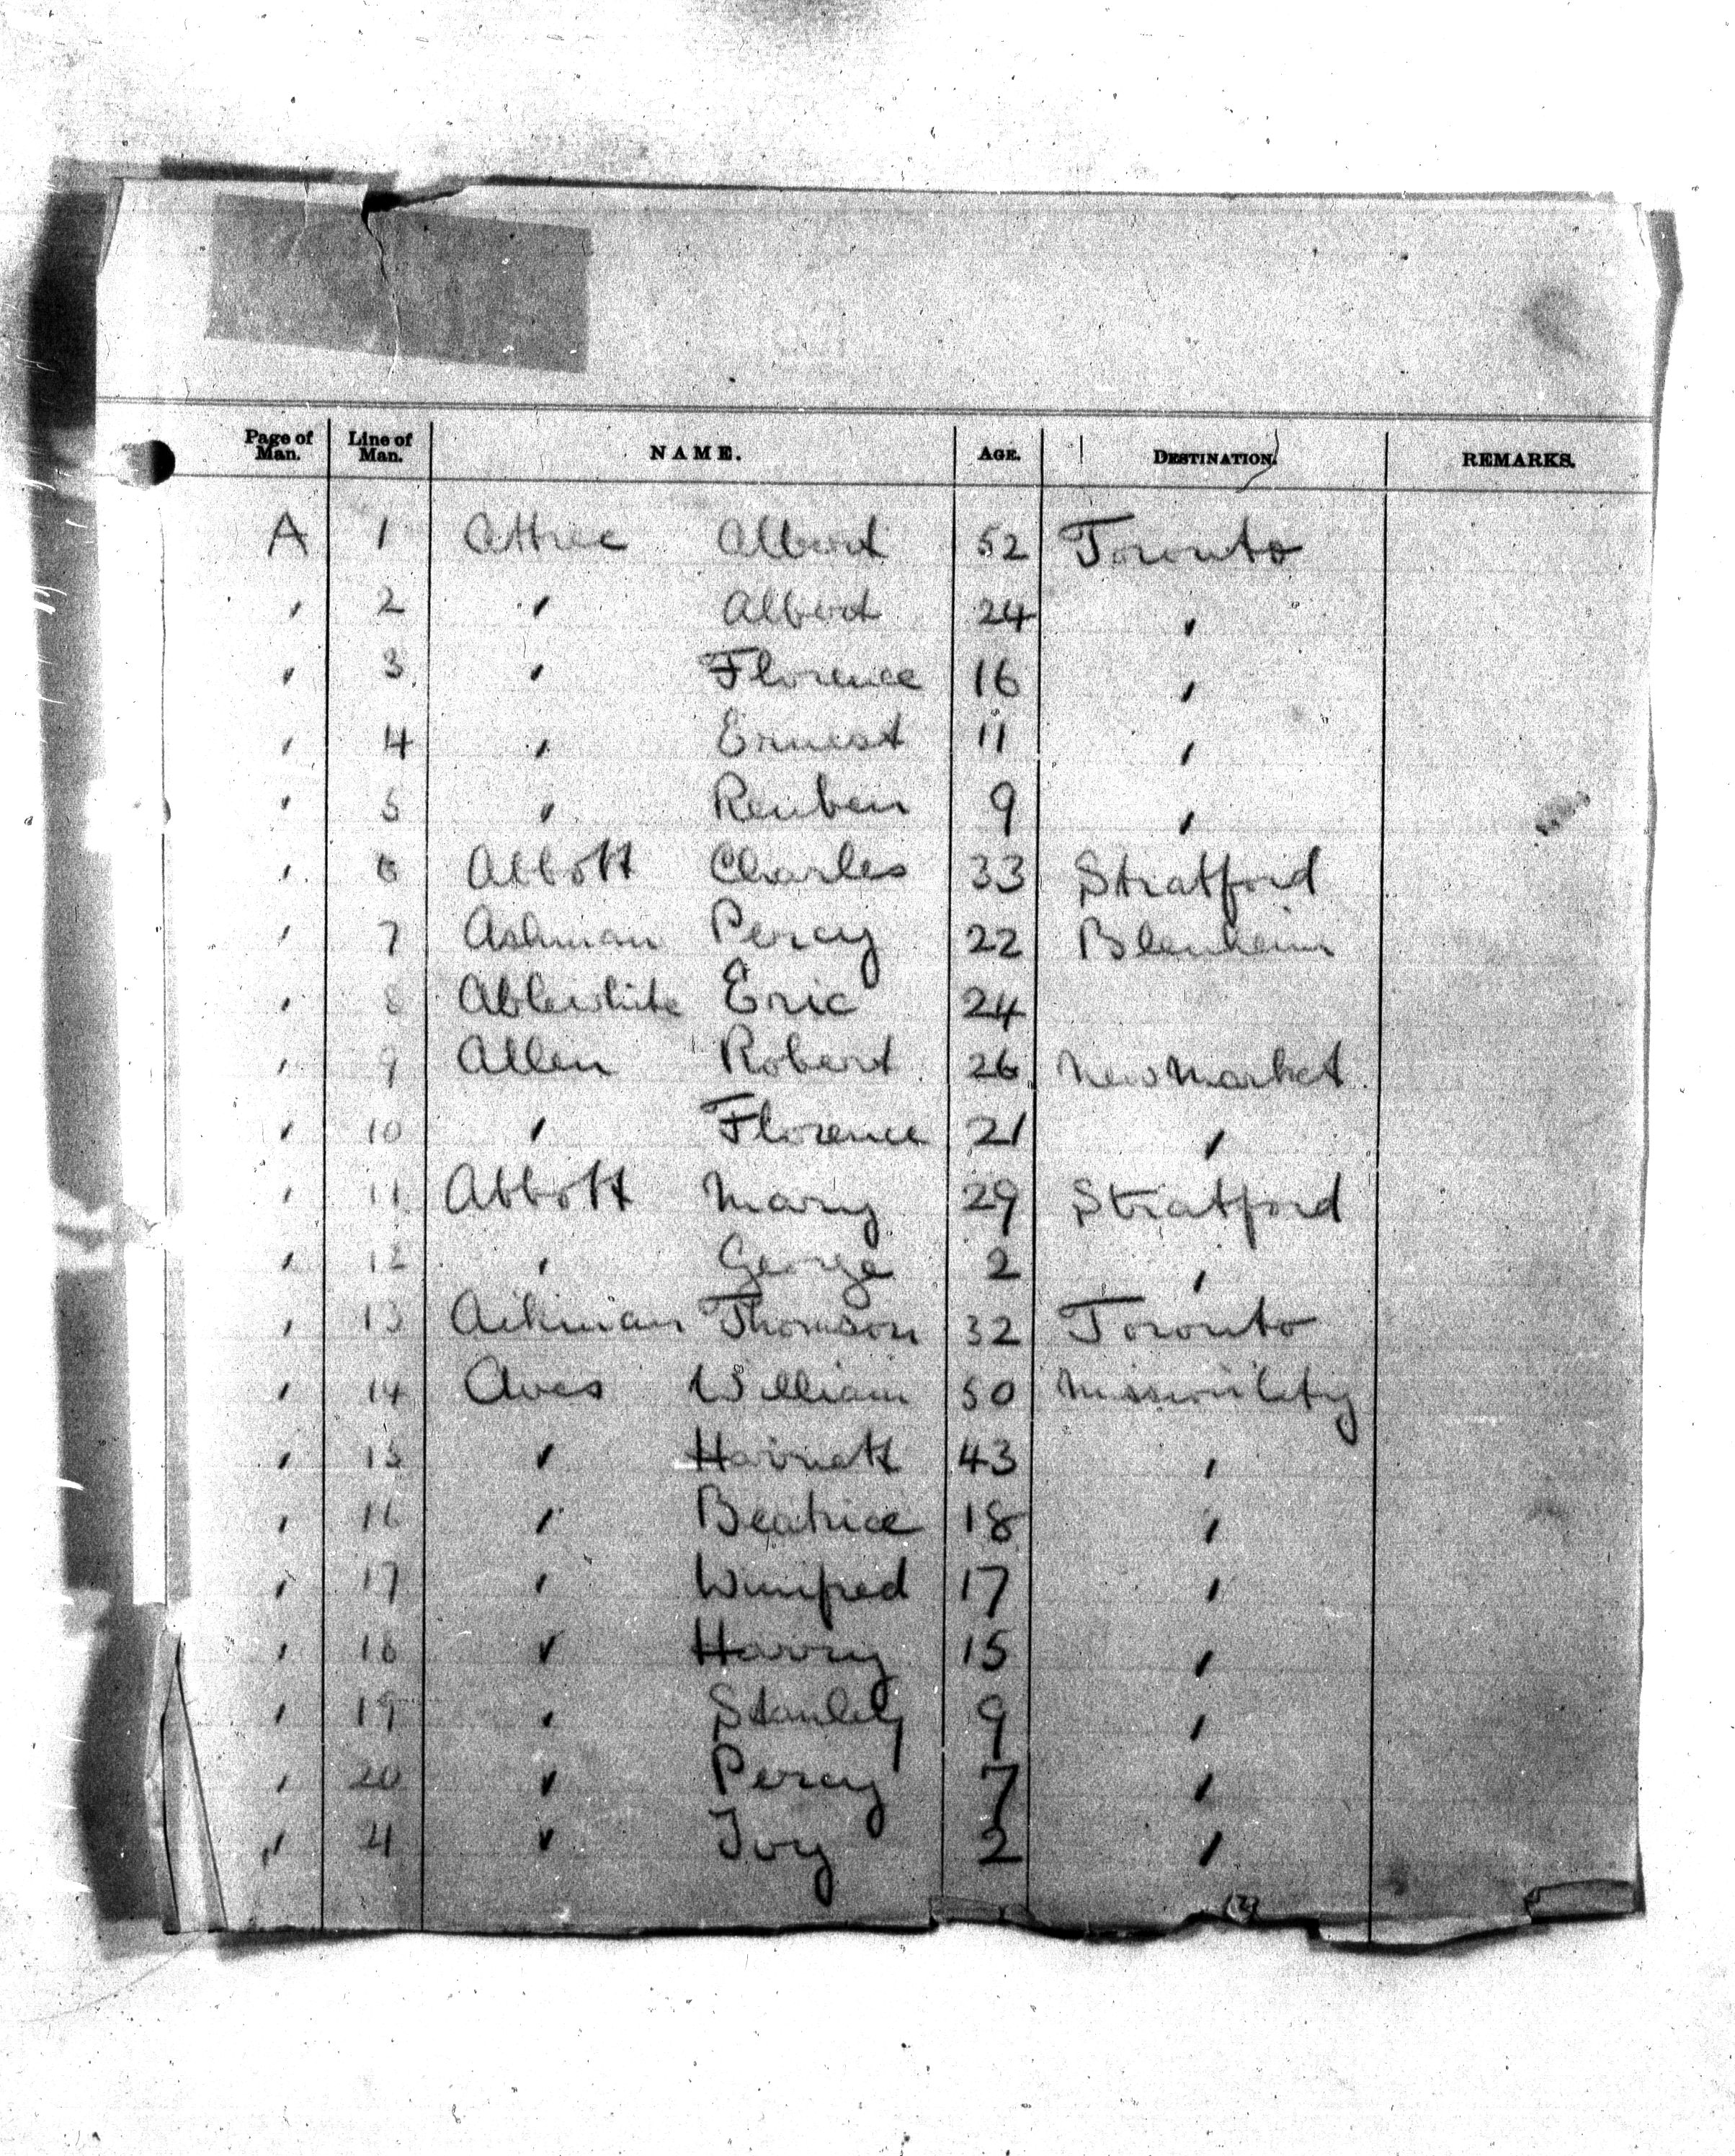 Page of Man. Line of Man. NAME. AGE. DESTINATION. REMARKS.
A 1 Attree Albert 52 Toronto
" 2 " Albert 24 "
" 3 " Florence 16 "
" 4 " Ernest 11 "
" 5 " Reuben 9 "
" 6 Abbott Charles 33 Stratford
" 7 Ashman Percy 22 Blenheim
" 8 Ablewhite Eric 24
" 9 Allen Robert 26 Newmarket
" 10 " Florence 21 "
" 11 Abbott Mary 29 Stratford
" 12 " George 2 "
" 13 Aikman Thomson 32 Toronto
" 14 Aves William 50 Mission City
" 15 " Harriett 43 "
" 16 " Beatrice 18 "
" 17 " Winifred 17 "
" 18 " Harry 15 "
" 19 " Stanley 9 "
" 20 " Percy 7 "
" 4 " Ivy 2 "